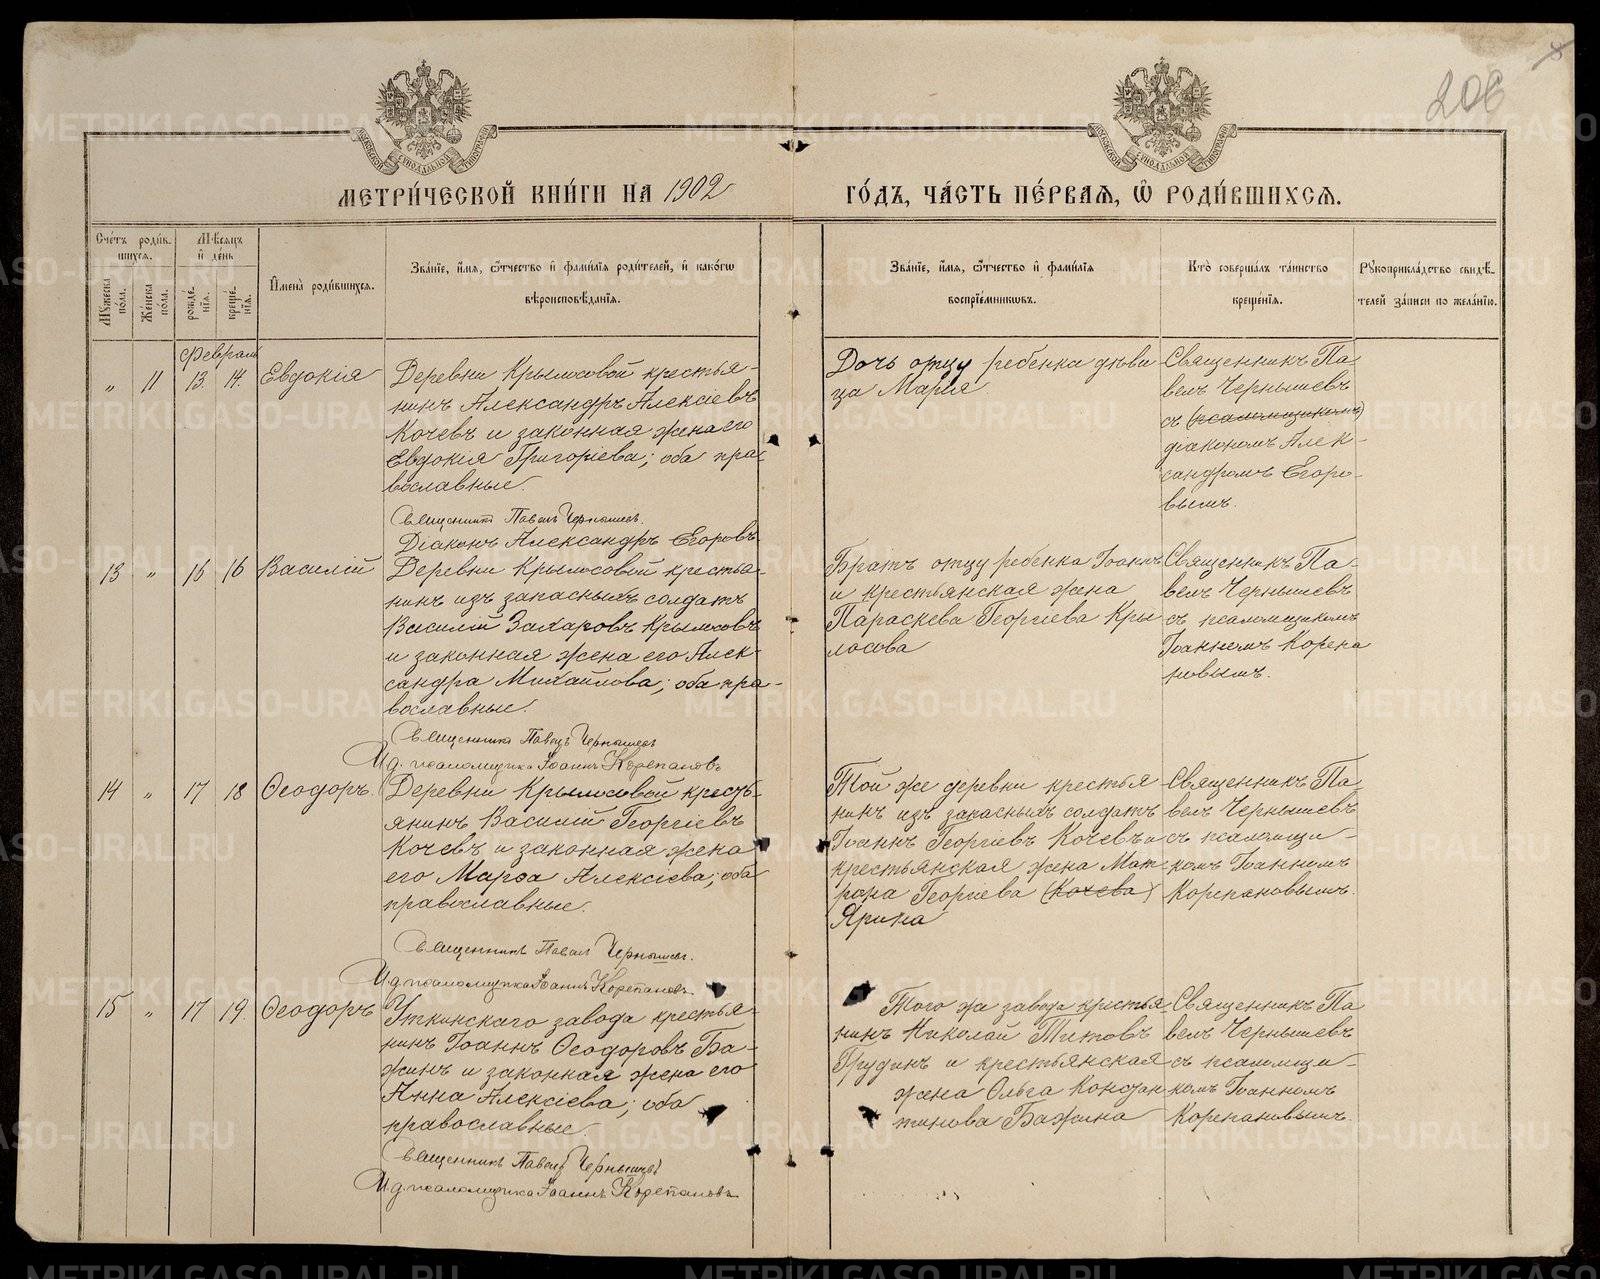 206
МОСКОВСКОЙ СѴНОДАЛЬНОЙ ТИПОГРАФІИ
МОСКОВСКОЙ СѴНОДАЛЬНОЙ ТИПОГРАФІИ
МЕТРИ́ЧЕСКОЙ КНИ́ГИ НА 1902
ГО́ДЪ, ЧА́СТЬ ПЕ́РВАѦ, Ѡ҆ РОДИ́ВШИХСѦ.
Сче́тъ роди́в-
шихсѧ.
Мꙋ́жеска по́ла.
Же́нска по́ла.
Мѣ́сѧцъ и҆ де́нь
рожде́-нїѧ.
креще́-нїѧ.
И҆мена̀ роди́вшихсѧ.
Зва́нїе, и҆́мѧ, ѻ҆́тчество и҆ фами́лїѧ роди́телей, и҆ како́гѡ
вѣроисповѣ́данїѧ.
Зва́нїе, и҆́мѧ, ѻ҆́тчество и҆ фами́лїѧ
воспрїе́мникѡвъ.
Кто̀ соверша́лъ та́инство
креще́нїѧ.
Рꙋкоприкла́дство свидѣ́-
телей за́писи по жела́нїю.
Февраль
" 11 13. 14. Евдокія
Деревни Крылосовой крестья-
нинъ Александръ Алексіевъ
Кочевъ и законная жена его
Евдокія Григоріева; оба пра-
вославные.
Священникъ Павелъ Чернышевъ.
Діаконъ Александръ Егоровъ
Дочь отцу ребенка дѣви
ца Марія
Священникъ Па-
велъ Чернышевъ
съ (псаломщикомъ)
діакономъ Алек-
сандромъ Егоро-
вымъ.
13 " 15 16 Василій
Деревни Крылосовой крестья-
нинъ изъ запасныхъ солдатъ
Василій Захаровъ Крылосовъ
и законная жена его Алек-
сандра Михайлова; оба пра-
вославные.
Священникъ Павелъ Чернышевъ
И.д. псаломщика Іоаннъ Корепановъ
Братъ отцу ребенка Іоаннъ
и крестьянская жена
Параскева Георгіева Кры
лосова
Священникъ Па-
велъ Чернышевъ
съ псаломщикомъ
Іоанномъ Корепа
новымъ.
14 " 17 18 Ѳеодоръ.
Деревни Крылосовой кресть-
янинъ Василій Георгіевъ
Кочевъ и законная жена
его Марѳа Алексіева; оба
православные.
Священникъ Павелъ Чернышевъ.
И.д. псаломщика Іоаннъ Корепановъ
Той же деревни крестья
нинъ изъ запасныхъ солдатъ
Іоаннъ Георгіевъ Кочевъ и
крестьянская жена Мат-
рона Георгіева (Кочева)
Ярина
Священникъ Па-
велъ Чернышевъ
съ псаломщи-
комъ Іоанномъ
Корепановымъ.
15 " 17 19. Ѳеодоръ
Уткинскаго завода крестья-
нинъ Іоаннъ Ѳеодоровъ Ба-
жинъ и законная жена его
Анна Алексіева; оба
православные.
Священникъ Павелъ Чернышевъ
И.д. псаломщика Іоаннъ Корепановъ
Того же завода крестья
нинъ Николай Титовъ
Грудинъ и крестьянская
жена Ольга Констан
тинова Бажина
Священникъ Па
велъ Чернышевъ
съ псаломщи-
комъ Іоанномъ
Корепановымъ.
METRIKI.GASO-URAL.RU